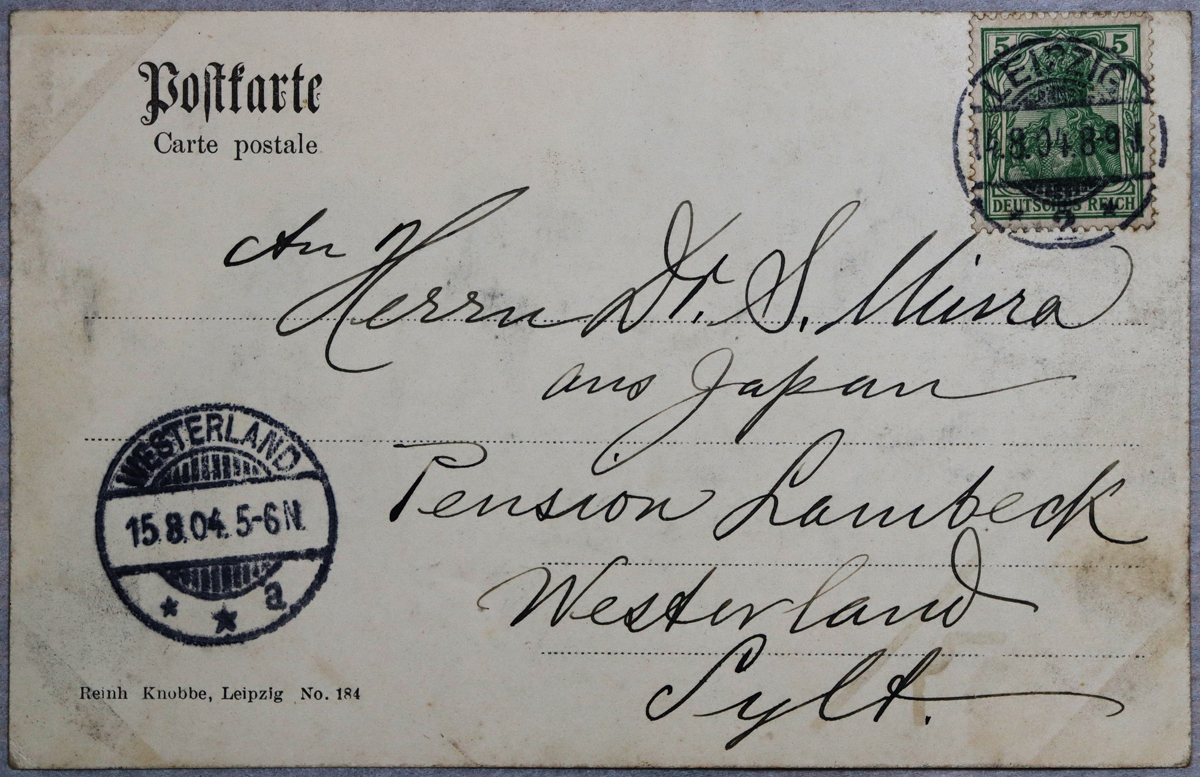 Postkarte
Carte postale
5 5
LEIPZIG
14.8.04.8-9
DEUTSCHES REICH
An Herrn Dr. S. Miura
aus Japan
Pension Lambeck
Westerland
Sylt.
WESTERLAND
15.8.04.5-6N.
* * a
Reinh Knobbe, Leipzig No. 184